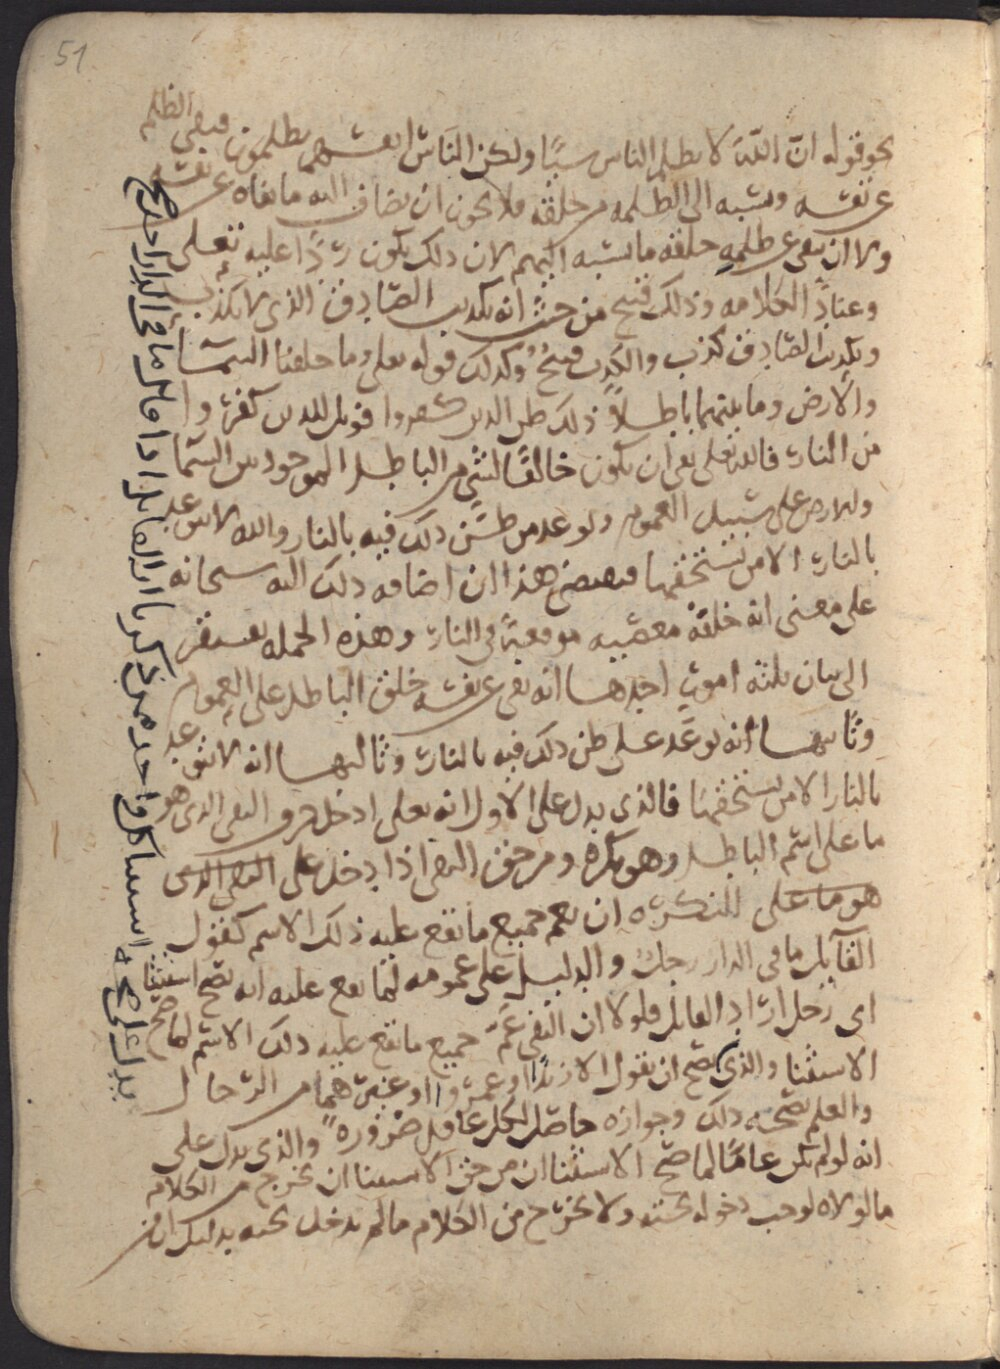 51
نحو قوله ان الله لا يظلم الناس شيئا ولكن الناس انفسهم يظلمون فنفى الظلم
عن نفسه ونسبه الى الظلمه من خلقه فلا يجوز ان يضاف اليه ما نفاه عن نفسه
ولا ان ينفى عن ظلمه خلقه ما نسبه اليهم لان ذلك يكون ردًّا عليه تعلى
وعنادًا لكلامه وذلك قبيح من حيث انه تكذيب الصادق الذي لا يكذب
وتكذيب الصّادق كذب والكذب قبيح وكذلك قوله تعلى وما خلقنا السمآ
والارض وما بينهما باطلاً ذلك ظن الذين كفروا فويل للذين كفروا
من النار فالله تعلى نفى ان يكون خالقًا لشي من الباطل الموجود بين السمآ
والارض على سبيل العموم وتوعد من ظن ذلك فيه بالنار والله لا يتوعد
بالنار الا من يستحقها فيقتضي هذا ان اضافه ذلك اليه سبحانه
على معنى انه خلقه معصيه موقعة في النار وهذه الجمله تفتقر
الى بيان ثلثه امور احدها انه نفى عن نفسه خلق الباطل على العموم
وثانيها انه توعّد على ظن ذلك فيه بالنار وثالثها انه لا يتوعد
بالنار الا من يستحقها فالذي يدل على الاول انه تعلى ادخل حرف النفي الذي هو
ما على اسم الباطل وهو نكرة ومن حق النفي اذا دخل على النفي الذي
هو ما على النكره ان يعم جميع ما يقع عليه ذلك الاسم كقول
القآيل ما في الدار رجل والدليل على عمومه لما يقع عليه انه يصح استثنا
اي رجل اراد القايل فلولا ان النفي عَمّ جميع ما يقع عليه ذلك الاسم لما صح
الاستثنا والذي يصح ان يقول الا زيدًا او عمروا او غيرهما من الرجال
والعلم بصحه ذلك وجوازه حاصل لكل عاقل ضرورهً والذي يدل على
انه لو لم يكن عامًّا لما صح الاستثنا ان من حق الاستثنا ان يخرج من الكلام
ما لولاه لوجب دخوله تحته ولا يخرج من الكلام ما لم يدخل تحته بدليل ان من
يدل على صحه استثنا كل واحد ممن ذكرنا ان القايل اذا قال ما في الدار احد صح